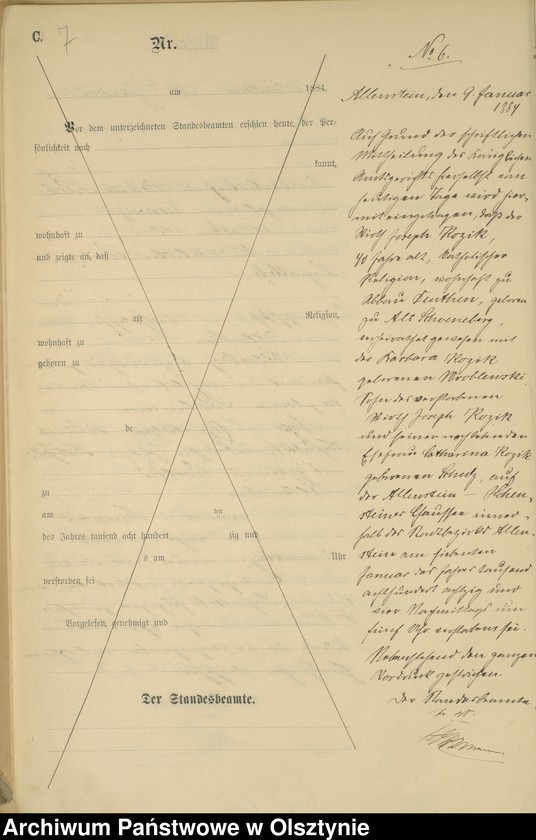 C. 7
Nr.
am 1884.
Vor dem unterzeichneten Standesbeamten erschien heute, der Per-
sönlichkeit nach
kannt,
wohnhaft zu
und zeigte an, daß
alt Religion,
wohnhaft zu
geboren zu
de
zu
am ten
des Jahres tausend acht hundert zig und
s um Uhr
verstorben sei
Vorgelesen, genehmigt und
Der Standesbeamte.
No 6.
Allenstein, den 9. Januar
1884
Auf Grund der schriftlichen
Mittheilung des Königlichen
Amtsgerichts hierselbst vom
heutigen Tage wird hier-
mit eingetragen, daß der
Wirth Joseph Kozik,
40 Jahre alt, katholischer
Religion, wohnhaft zu
Abbau, geboren
zu Alt Schoeneberg,
verheirathet gewesen mit
der Barbara Kozik
geborenen Wroblenski,
Sohn des verstorbenen
Wirth Joseph Kozik
und seiner nachlebenden
Ehefrau Catharina Kozik
geborenen Schulz, auf
der Allenstein – Hohen-
steiner Chaussee inner-
halb des Stadtbezirks Allen-
stein am siebenten
Januar des Jahres tausend
achthundert achtzig und
vier Nachmittags um
fünf Uhr verstorben sei.
Nebenstehend den ganzen
Vordruck gestrichen.
Der Standesbeamte
Archiwum Państwowe w Olsztynie